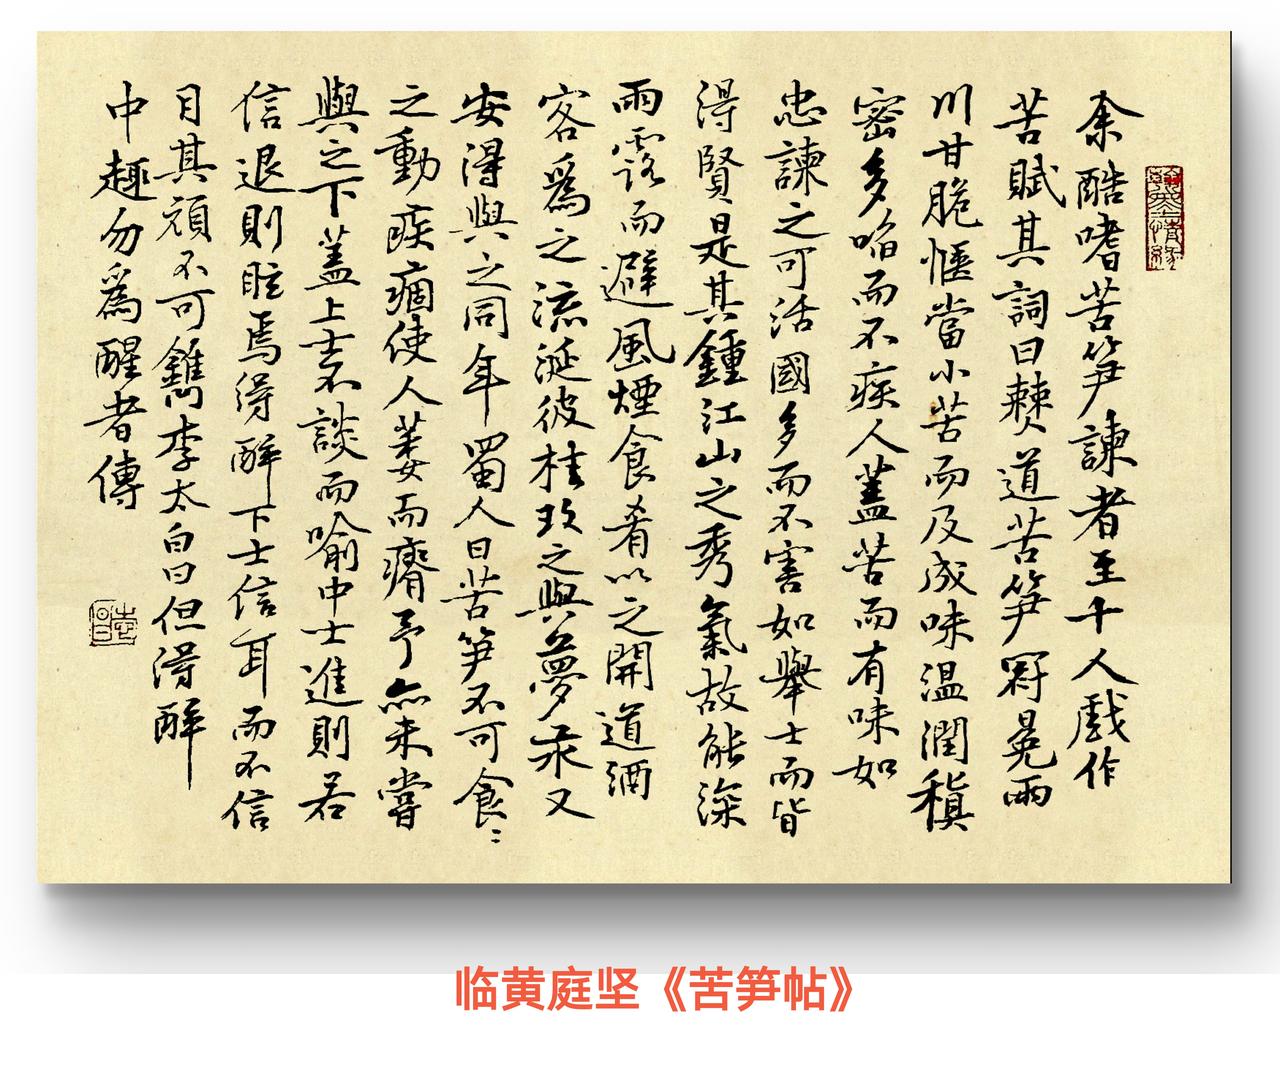 余酷嗜苦笋諫者至十人戲作
苦賦其詞曰僰道苦笋冠冕兩
川甘脆愜當小苦而及成味温潤稹
密多啗而不疾人蓋苦而有味如
忠諫之可活國多而不害如舉士而皆
得賢是其鍾江山之秀氣故能深
雨露而避風煙食肴以之開道酒
客為之流涎彼桂玫之與夢汞又
安得與之同年蜀人曰苦笋不可食〻
之動疾痼使人萎而瘠予亦未嘗
與之下蓋上士不談而喻中士進則若
信退則眩焉得醉下士信耳而不信
目其頑不可鐫李太白曰但得醉
中趣勿為醒者傳
临黄庭坚《苦笋帖》